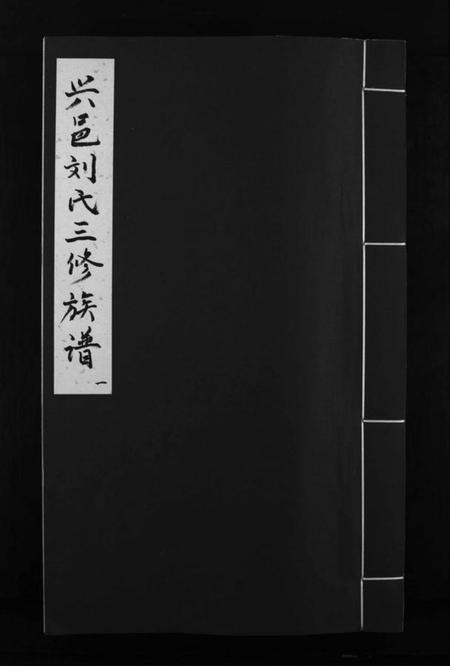 兴邑刘氏三修族谱
一